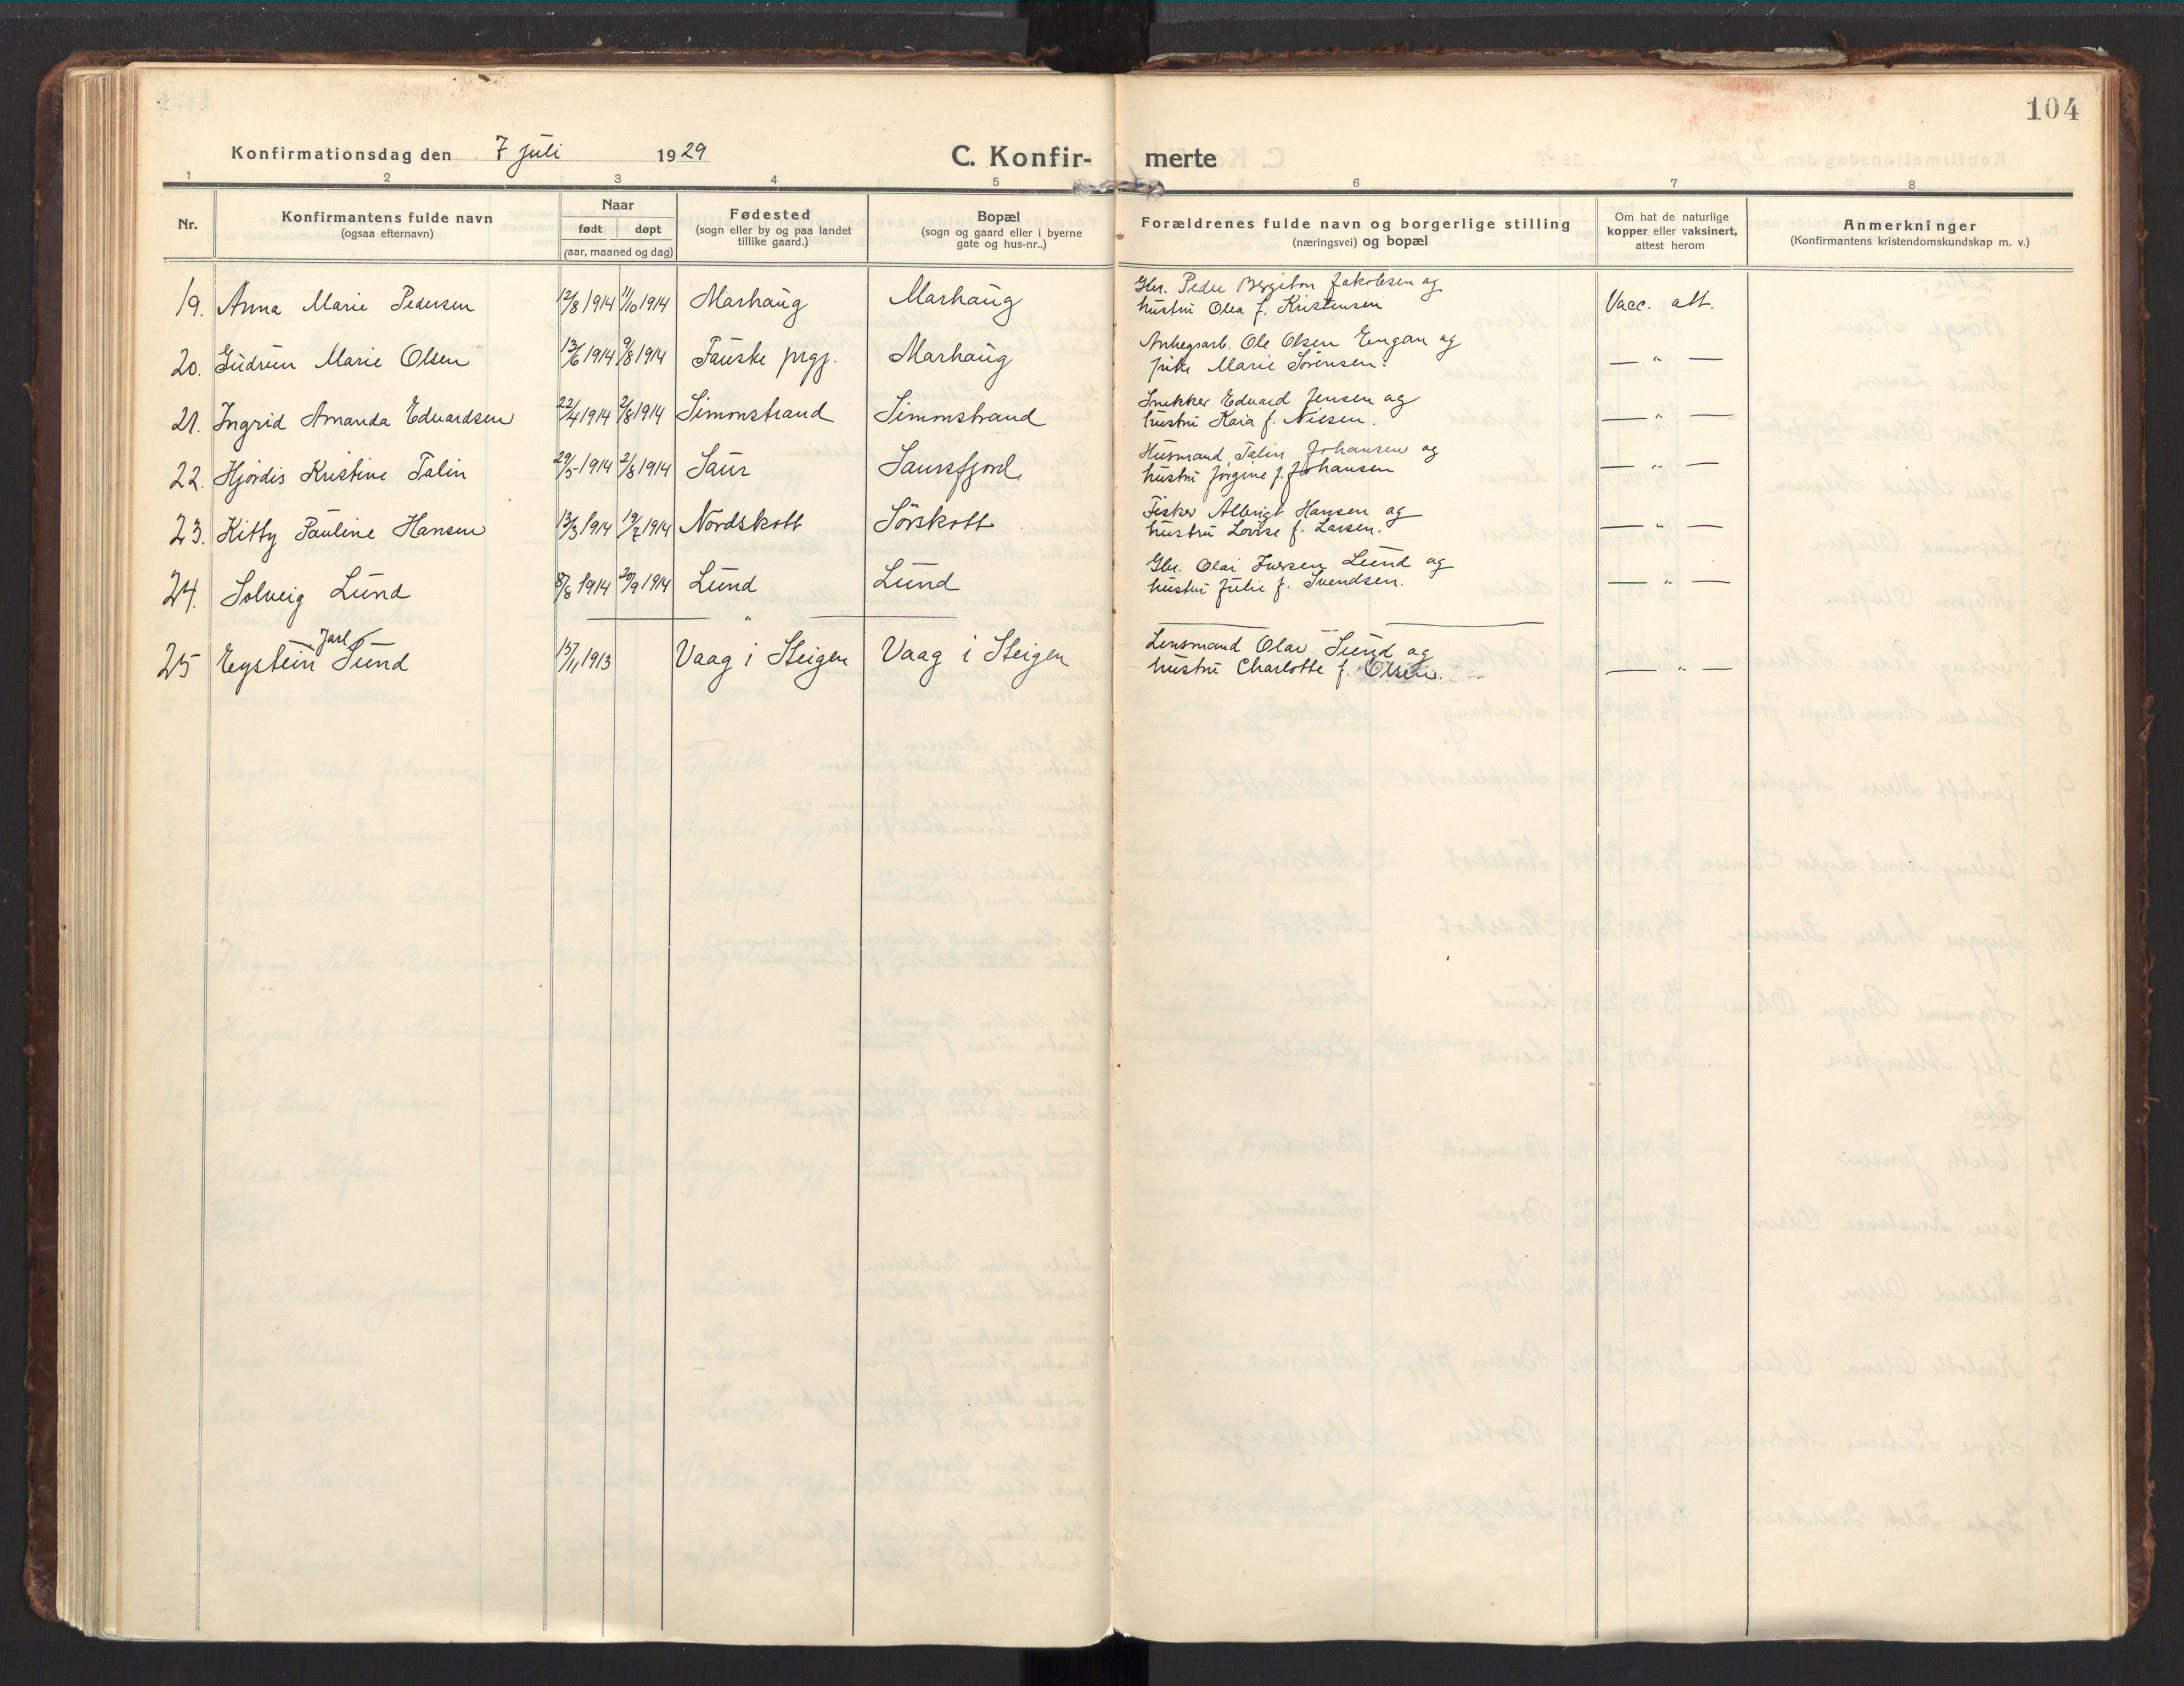 104
Konfirmationsdag den 7 juli 1929 C. Konfir- merte
1 2 3 4 5 6 7 8
Nr. Konfirmantens fulde navn (ogsaa efternavn) Naar født døpt (aar, maaned og dag) Fødested (sogn eller by og paa landet tillike gaard.) Bopæl (sogn og gaard eller i byerne gate og hus-nr..) Forældrenes fulde navn og borgerlige stilling (næringsvei) og bopæl Om hat de naturlige kopper eller vaksinert, attest herom Anmerkninger (Konfirmantens kristendomskundskap m. v.)
19. Anna Marie Pedersen 12/8 1914 11/10 1914 Marhaug Marhaug Gbr. Peder Bergiton Jakobsen og
hustru Olea f. Kristensen Vacc. att.
20. Gudrun Marie Olsen 13/6 1914 9/8 1914 Fauske prgj. Marhaug Anlegsarb. Ole Olsen Engan og
pike Marie Sørensen. — " —
21. Ingrid Amanda Edvardsen 22/4 1914 2/8 1914 Simonstrand Simonstrand Snekker Edvard Jensen og
hustru Kaia f. Nilsen. — " —
22. Hjördis Kristine Talin 29/5 1914 2/8 1914 Saur Saursfjord Husmand Talin Johansen og
hustru Jørgine f. Johansen — " —
23. Kitty Pauline Hansen 13/3 1914 19/7 1914 Nordskott Sörskott Fisker Albrigt Hansen og
hustru Lovise f. Larsen. — " —
24. Solveig Lund 8/8 1914 20/9 1914 Lund Lund Gbr. Olai Iversen Lund og
hustru Julie f. Svendsen. — " —
25 Eystein Jarl Sund 15/11 1913 Vaag i Steigen Vaag i Steigen Lensmand Olav Sund og
hustru Charlotte f. Olsen. — " —